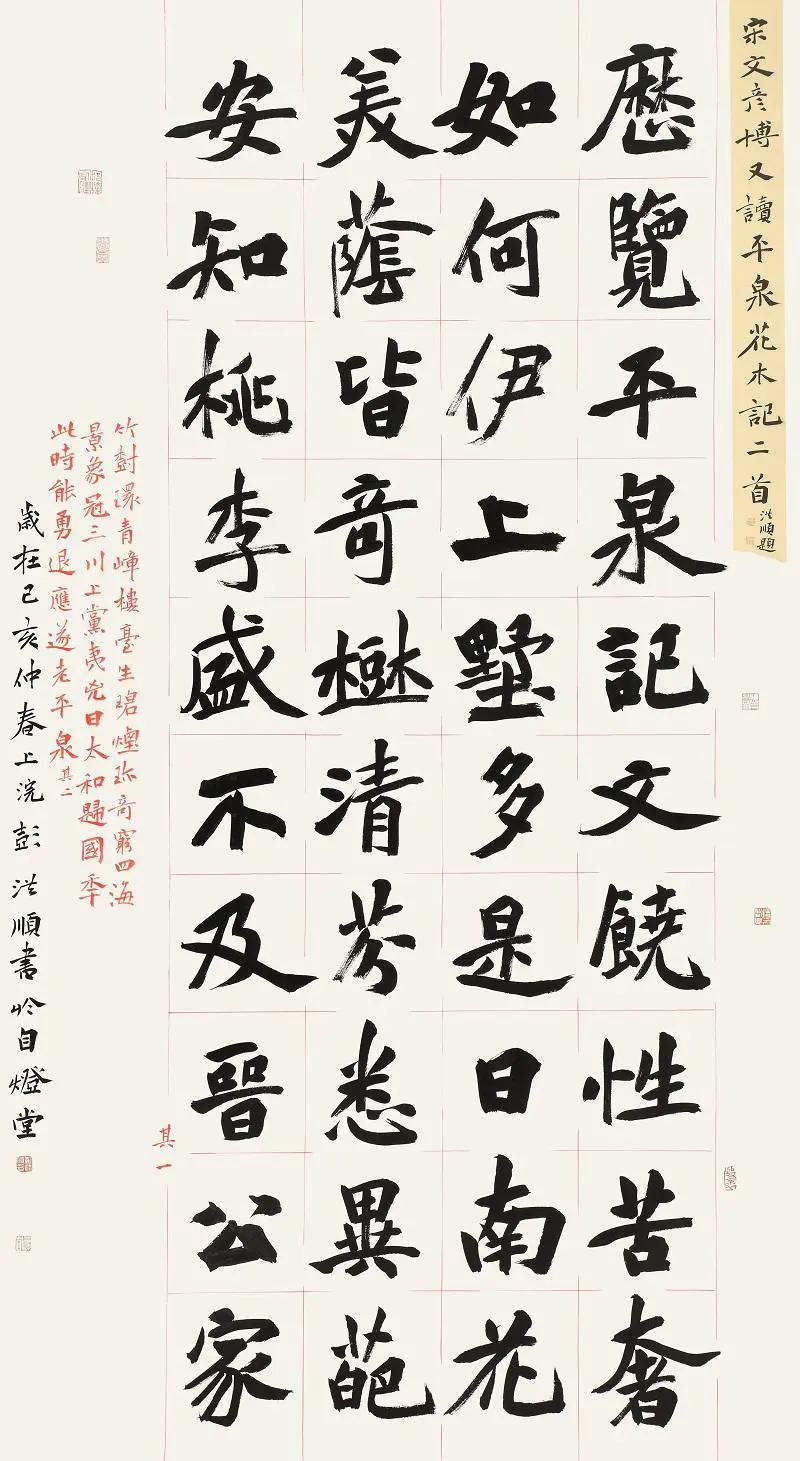 宋文彥博又讀平泉花木記二首
洪順題
歷覽平泉記文饒性苦奢
如何伊上墅多是日南花
美蔭皆奇樾清芬悉異葩
安知桃李盛不及晉公家
其一
竹樹環青嶂樓臺生碧煙珎奇窮四海
景象冠三川上黨夷兇日太和歸國年
此時能勇退應遂老平泉
其二
歲在己亥仲春上浣彭洪順書於自燈堂